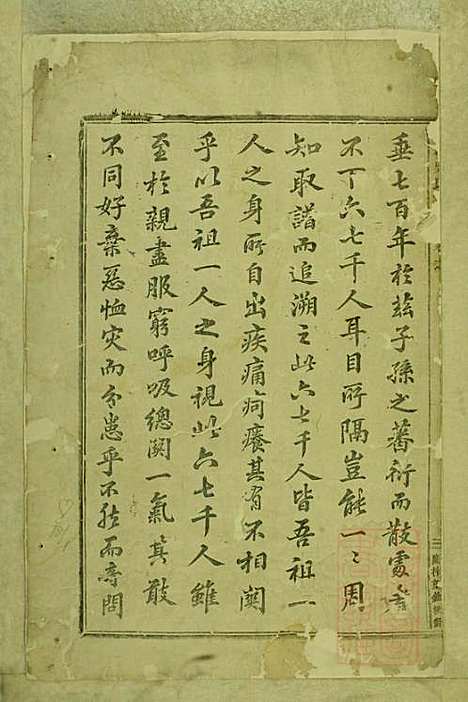 垂七百年於玆子孫之蕃衍而散處者
不下六七千人耳目所隔豈能一一周
知取譜而追溯之此六七千人皆吾祖一
人之身所自出疾痛疴癢其有不相關
乎以吾祖一人之身視此六七千人雖
至於親盡服窮呼吸總關一氣其敢
不同好棄惡恤灾而分患乎不然而音問